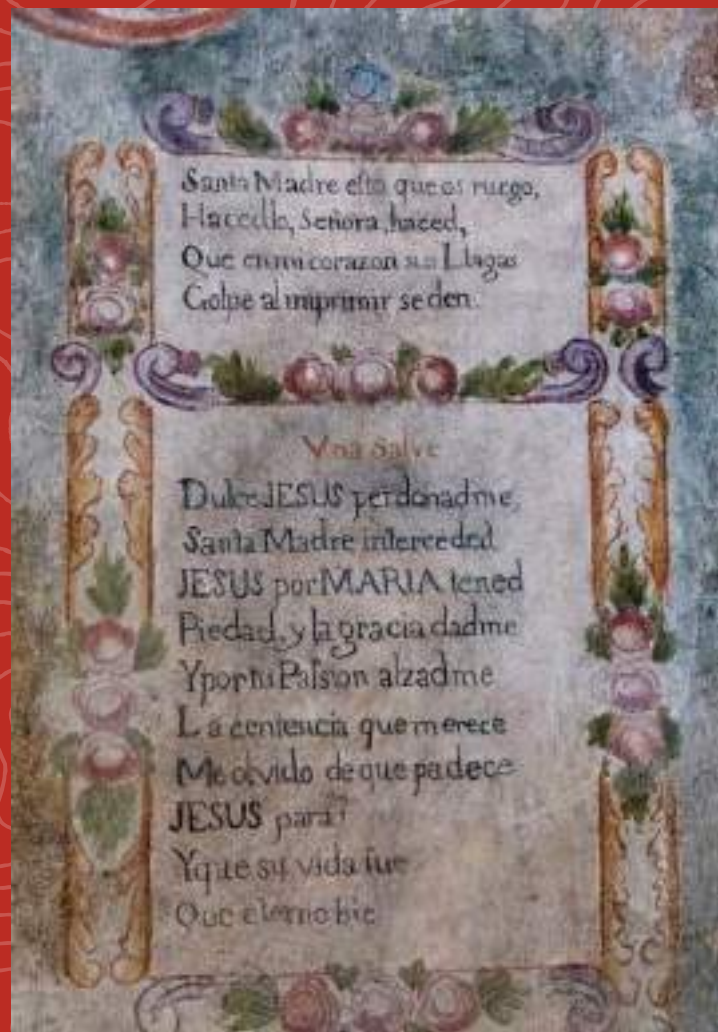 Santa Madre esto que os ruego,
Hacedlo, Señora, haced,
Que en mi corazon sus Llagas
Golpe al imprimir se den.
Vna Salve
Dulce JESUS perdonadme,
Santa Madre interceded
JESUS por MARIA tened
Piedad, y la gracia dadme
Y por tu Passion alzadme
La centencia que merece
Me olvido de que padece
JESUS para
Y que su vida fue
Que eterno bie